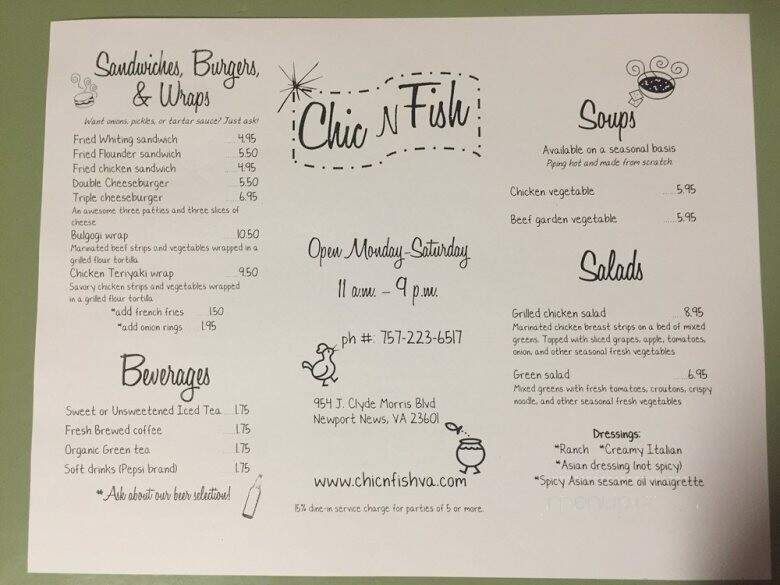 Sandwiches, Burgers,
& Wraps
Want onions, pickles, or tartar sauce? Just ask!
Fried Whiting sandwich ....4.95
Fried Flounder sandwich ....5.50
Fried chicken sandwich ....4.95
Double Cheeseburger ....5.50
Triple cheeseburger ....6.95
An awesome three patties and three slices of
cheese
Bulgogi wrap ....10.50
Marinated beef strips and vegetables wrapped in a
grilled flour tortilla
Chicken Teriyaki wrap ....9.50
Savory chicken strips and vegetables wrapped
in a grilled flour tortilla
*add french fries ....1.50
*add onion rings ....1.95
Beverages
Sweet or Unsweetened Iced Tea ....1.75
Fresh Brewed coffee ....1.75
Organic Green tea ....1.75
Soft drinks (Pepsi brand) ....1.75
** Ask about our beer selection!
Chic N Fish
Open Monday-Saturday
11 a.m. - 9 p.m.
ph #: 757-223-6517
954 J. Clyde Morris Blvd
Newport News, VA 23601
www.chicnfishva.com
15% dine-in service charge for parties of 5 or more.
Soups
Available on a seasonal basis
Piping hot and made from scratch
Chicken vegetable ....5.95
Beef garden vegetable ....5.95
Salads
Grilled chicken salad ....8.95
Marinated chicken breast strips on a bed of mixed
greens. Topped with sliced grapes, apple, tomatoes,
onion, and other seasonal fresh vegetables
Green salad ....6.95
Mixed greens with fresh tomatoes, croutons, crispy
noodle, and other seasonal fresh vegetables
Dressings:
*Ranch *Creamy Italian
*Asian dressing (not spicy)
*Spicy Asian sesame oil vinaigrette